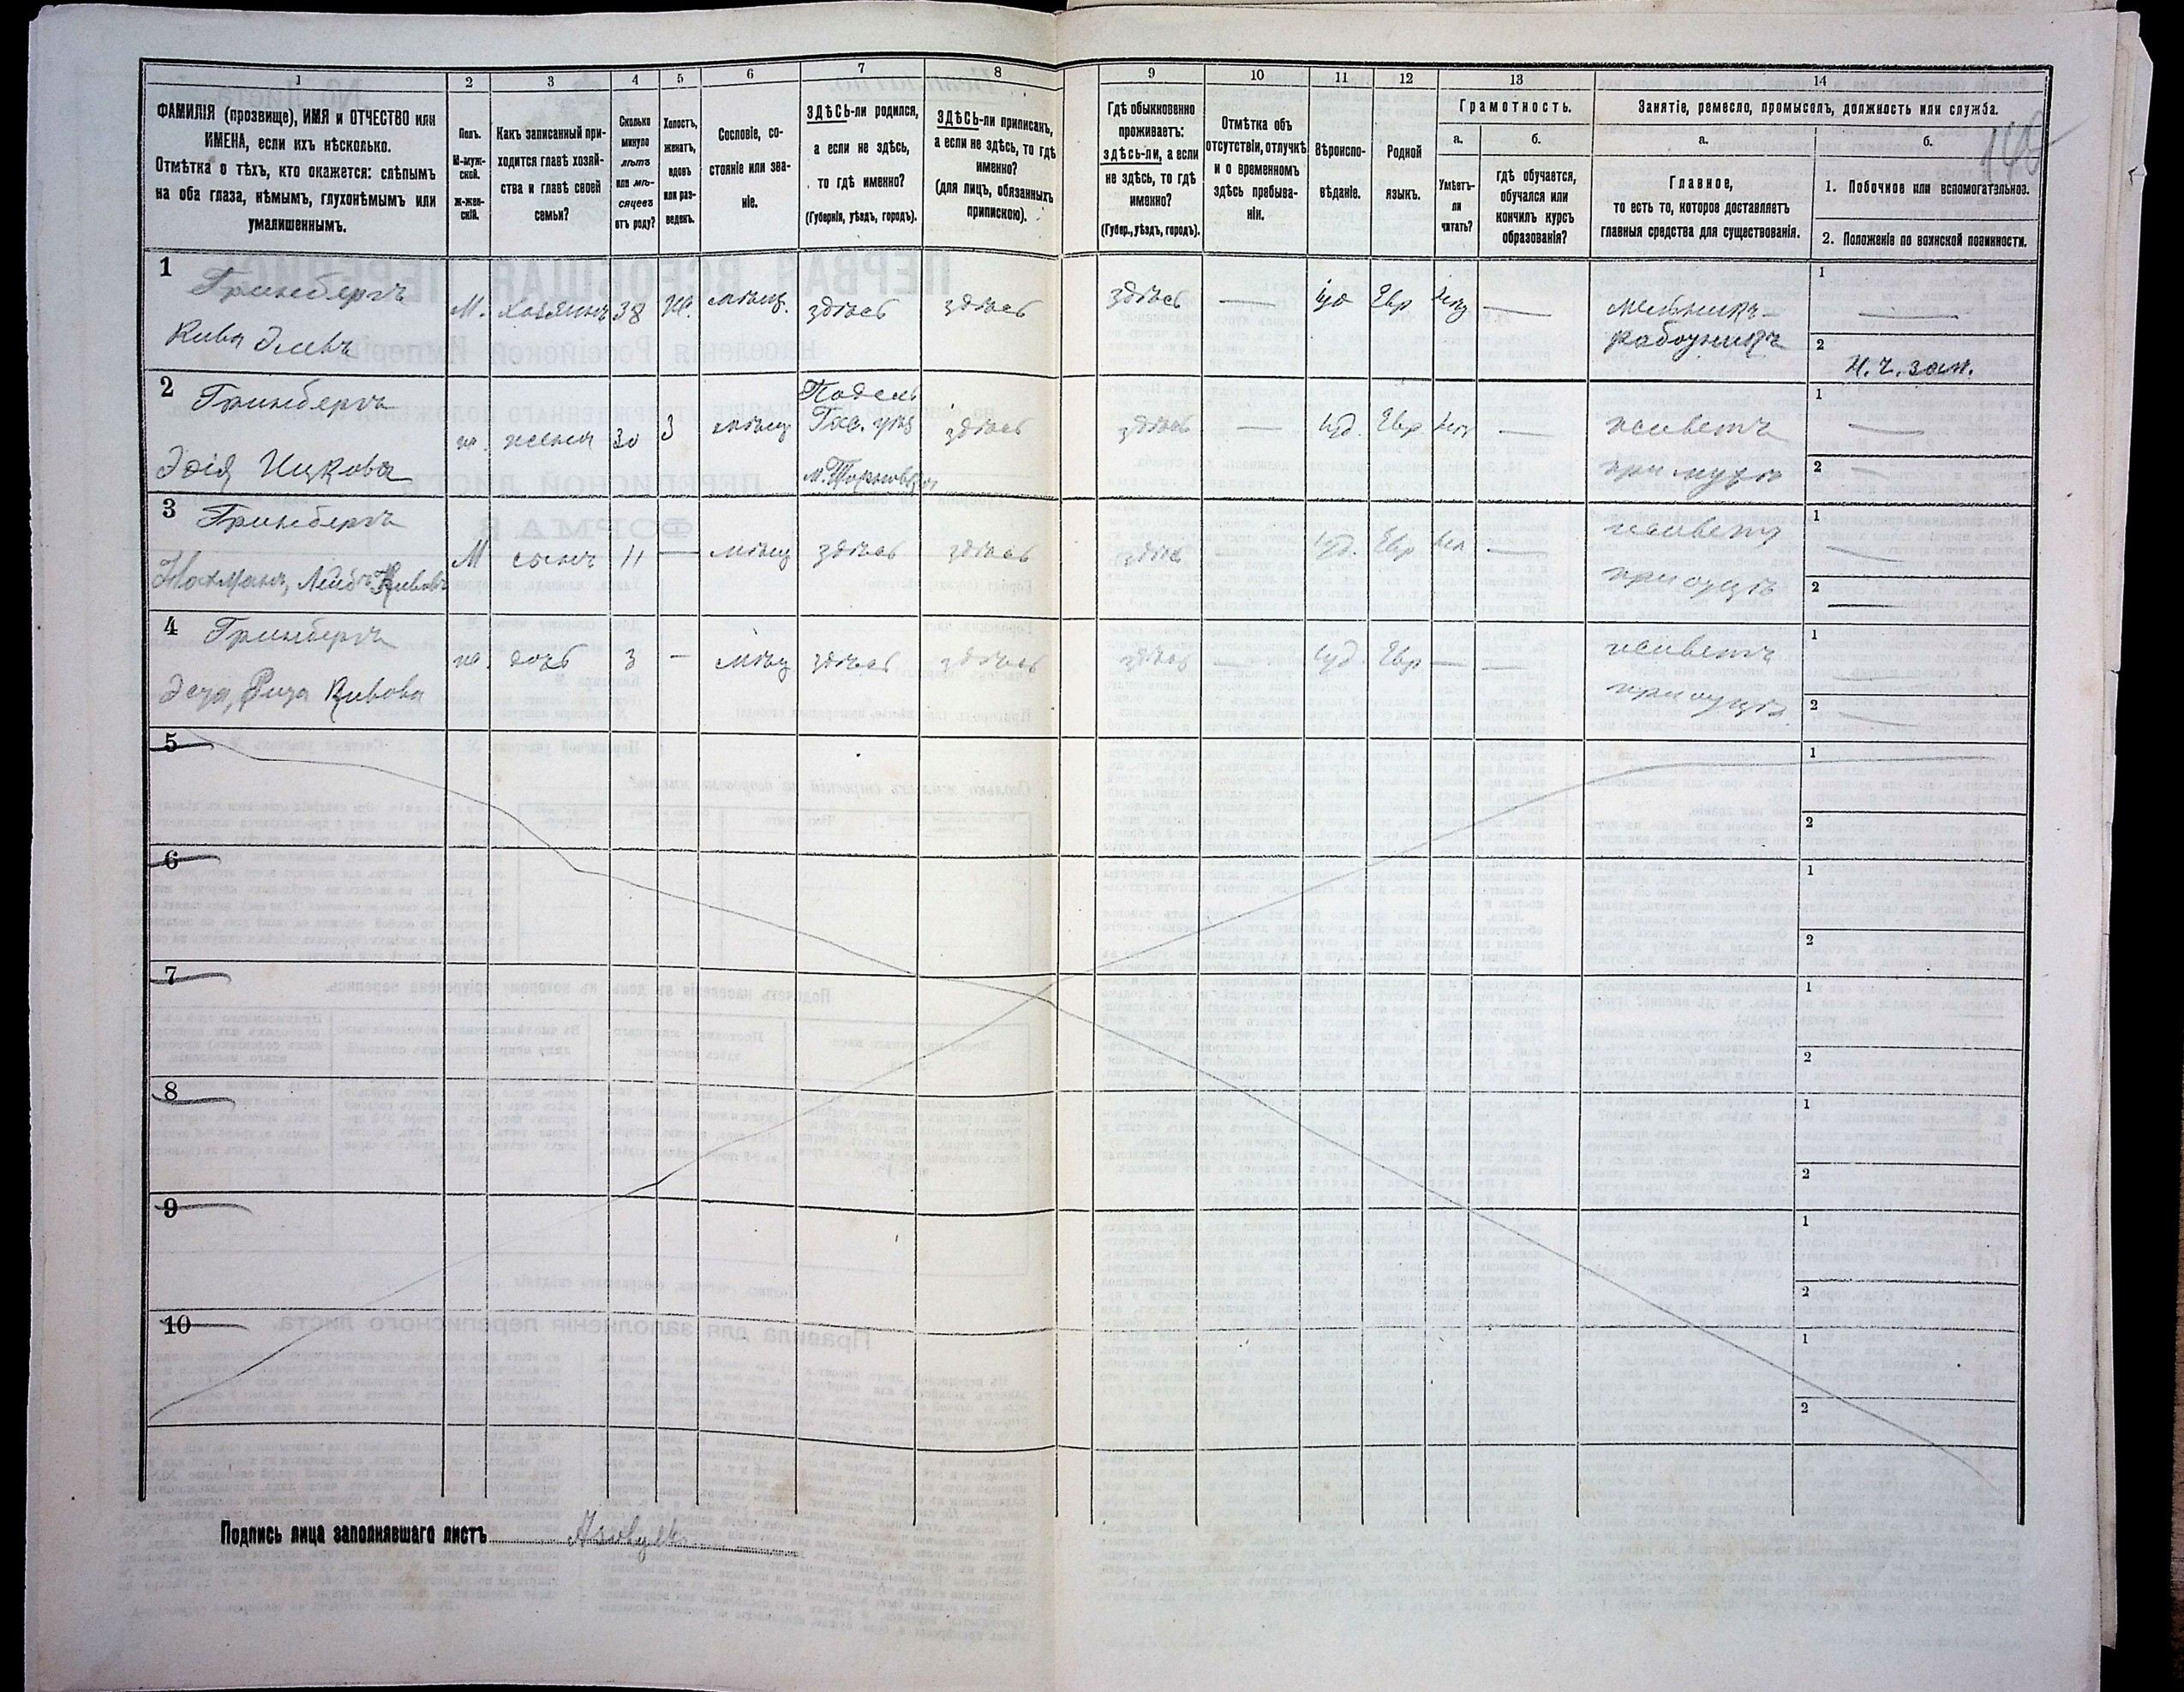 1 2 3 4 5 6 7 8 9 10 11 12 13 14
ФАМИЛІЯ (прозвище), ИМЯ и ОТЧЕСТВО или
ИМЕНА, если ихъ нѣсколько.
Отмѣтка о тѣхъ, кто окажется: слѣпымъ
на оба глаза, нѣмымъ, глухонѣмымъ или
умалишеннымъ.
Полъ.
М-муж-
ской.
ж-жен-
скій.
Какъ записанный при-
ходится главѣ хозяй-
ства и главѣ своей
семьи?
Сколько
минуло
лѣтъ
или мѣ-
сяцевъ
отъ роду?
Холостъ,
женатъ,
вдовъ
или раз-
веденъ.
Сословіе, со-
стояніе или зва-
ніе.
ЗДѢСЬ-ли родился,
а если не здѣсь,
то гдѣ именно?
(Губернія, уѣздъ, городъ).
ЗДѢСЬ-ли приписанъ,
а если не здѣсь, то гдѣ
именно?
(для лицъ, обязанныхъ
припискою).
Гдѣ обыкновенно
проживаетъ:
здѣсь-ли, а если
не здѣсь, то гдѣ
именно?
(Губер., уѣздъ, городъ).
Отмѣтка объ
отсутствіи, отлучкѣ
и о временномъ
здѣсь пребыва-
ніи.
Вѣроиспо-
вѣданіе.
Родной
языкъ.
Грамотность.
а.
Умѣетъ-
ли
читать?
б.
гдѣ обучается,
обучался или
кончилъ курсъ
образованія?
Занятіе, ремесло, промыселъ, должность или служба.
а.
Главное,
то есть то, которое доставляетъ
главныя средства для существованія.
б.
1. Побочное или вспомогательное.
2. Положеніе по воинской повинности.
1
Гринбергъ
Кива
М. хозяинъ 38 мѣщ. здѣсь здѣсь здѣсь — Евр —
мельникъ
работникъ
1 —
2
2
Гринбергъ
Ицкова
ж. жена 30 з мѣщ
Гас. уѣз
здѣсь здѣсь — Іуд. Евр —
живетъ
при мужѣ
1 —
2 —
3
Гринбергъ
Нахманъ, Лейбъ Кивовъ
М сынъ 11 — мѣщ здѣсь здѣсь здѣсь Іуд. Евр —
живетъ
при отцѣ
1 —
2 —
4
Гринбергъ
Кивова
ж. дочь 3 — мѣщ здѣсь здѣсь здѣсь — Іуд. Евр — —
живетъ
при отцѣ.
1 —
2 —
5
1
2
6
1
2
7
1
2
8
1
2
9
1
2
10
1
2
Подпись лица заполнявшаго листъ